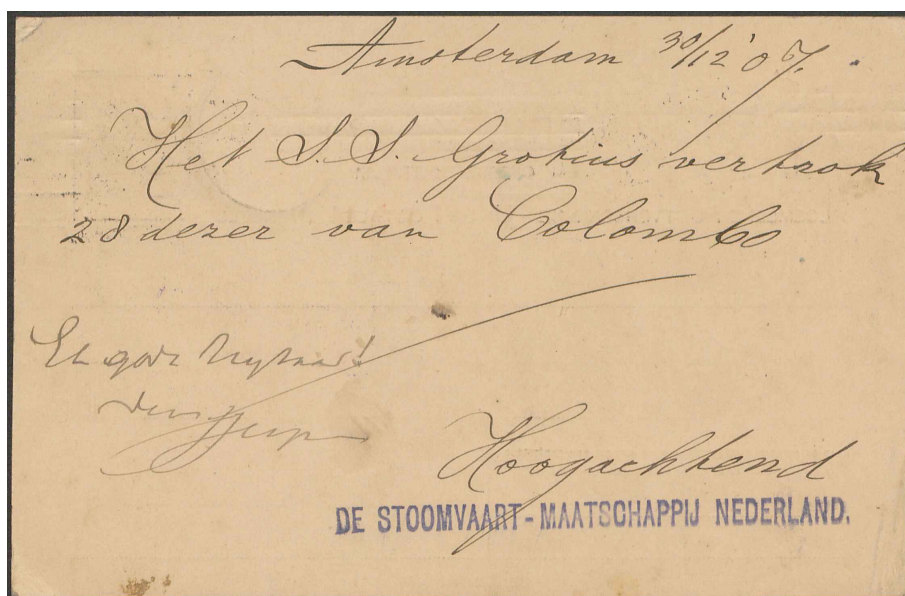 Amsterdam 30/12 '07.
Het S.S. Grotius vertrok
28 dezer van Colombo
Hoogachtend
DE STOOMVAART-MAATSCHAPPIJ NEDERLAND.